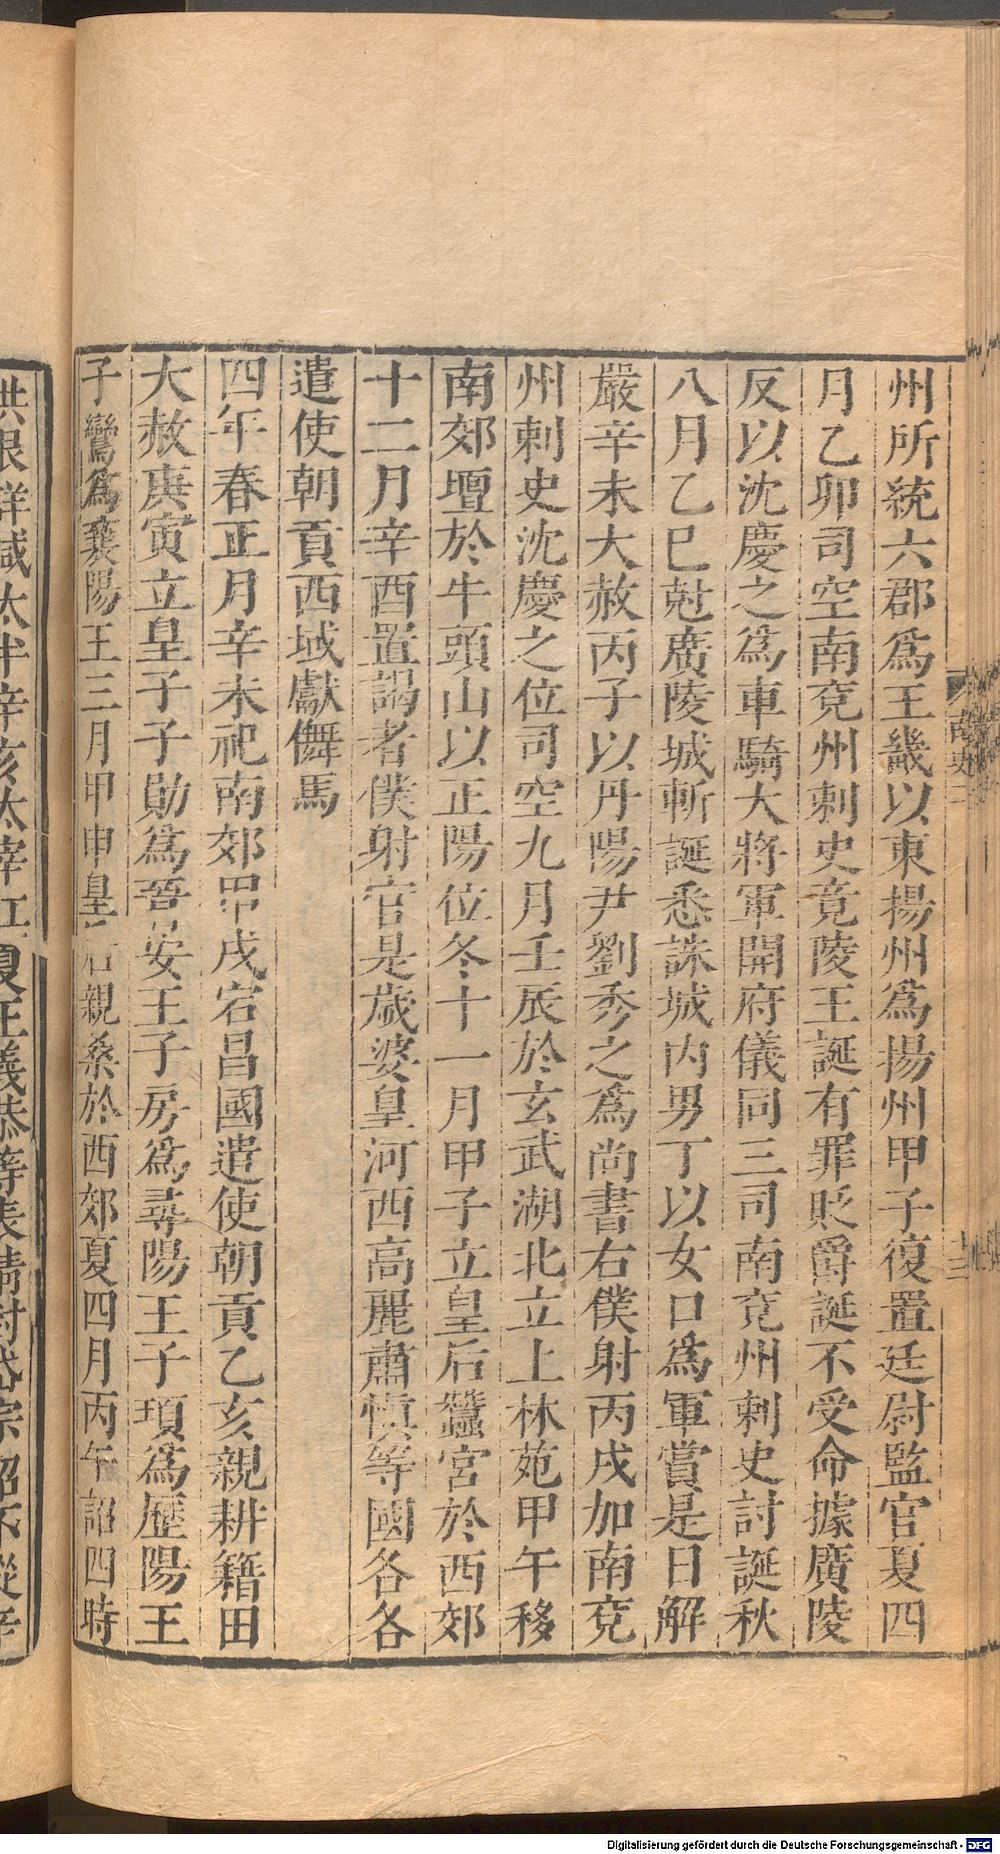 州所統六郡爲王畿以東揚州爲揚州甲子復置廷尉監官夏四
月乙卯司空南兖州刺史竟陵王誕有罪貶爵誕不受命據廣陵
反以沈慶之爲車騎大將軍開府儀同三司南兖州刺史討誕秋
八月乙巳尅廣陵城斬誕悉誅城内男丁以女口爲軍賞是日解
嚴辛未大赦丙子以丹陽尹劉秀之爲尚書右僕射丙戌加南兖
州刺史沈慶之位司空九月壬辰於玄武湖北立上林苑甲午移
南郊壇於牛頭山以正陽位冬十一月甲子立皇后蠶宮於西郊
十二月辛酉置謁者僕射官是歲婆皇河西高麗肅慎等國各各
遣使朝貢西域獻儛馬
四年春正月辛未祀南郊甲戌宕昌國遣使朝貢乙亥親耕籍田
大赦庚寅立皇子子勛爲晉安王子房爲尋陽王子頊爲歷陽王
子鸞爲襄陽王三月甲申皇后親桑於西郊夏四月丙午詔四時
南史二
十二
減太半辛亥太宰江夏王義恭等表請封岱宗詔不從辛
Digitalisierung gefördert durch die Deutsche Forschungsgemeinschaft - DFG